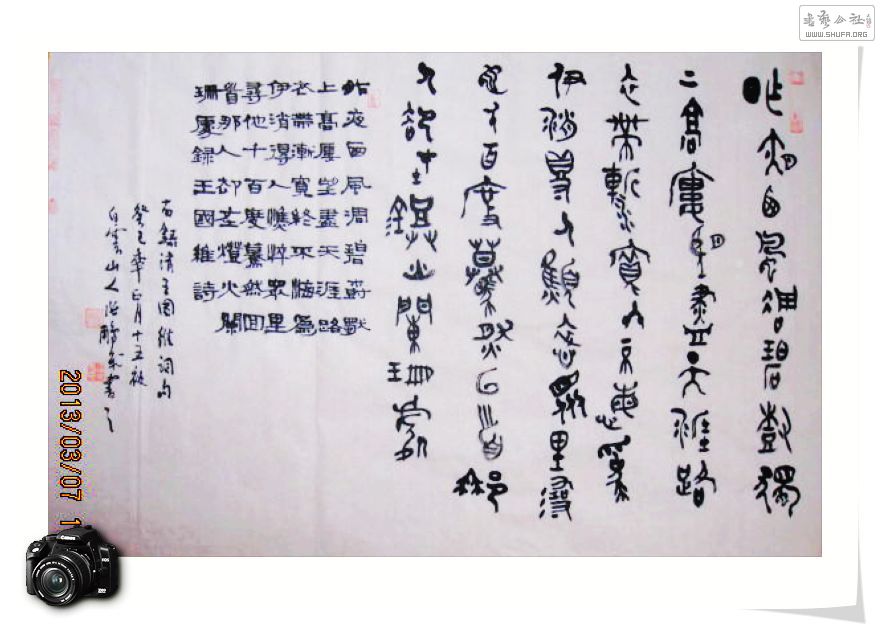 昨夜西風凋碧樹獨
上高樓望盡天涯路
衣帶漸寬終不悔為
伊消得人憔悴眾里尋
他千百度驀然回首那
人卻在燈火闌珊處
昨夜西風凋碧樹獨
上高樓望盡天涯路
衣帶漸寬終不悔為
伊消得人憔悴眾里
尋他千百度驀然回
首那人卻在燈火闌
珊處錄王國維詩
右錄清王國維詞句
癸巳年正月十五夜
白雲山人海鵬書之
2013/03/07 1
WWW.SHUFA.ORG
Canon